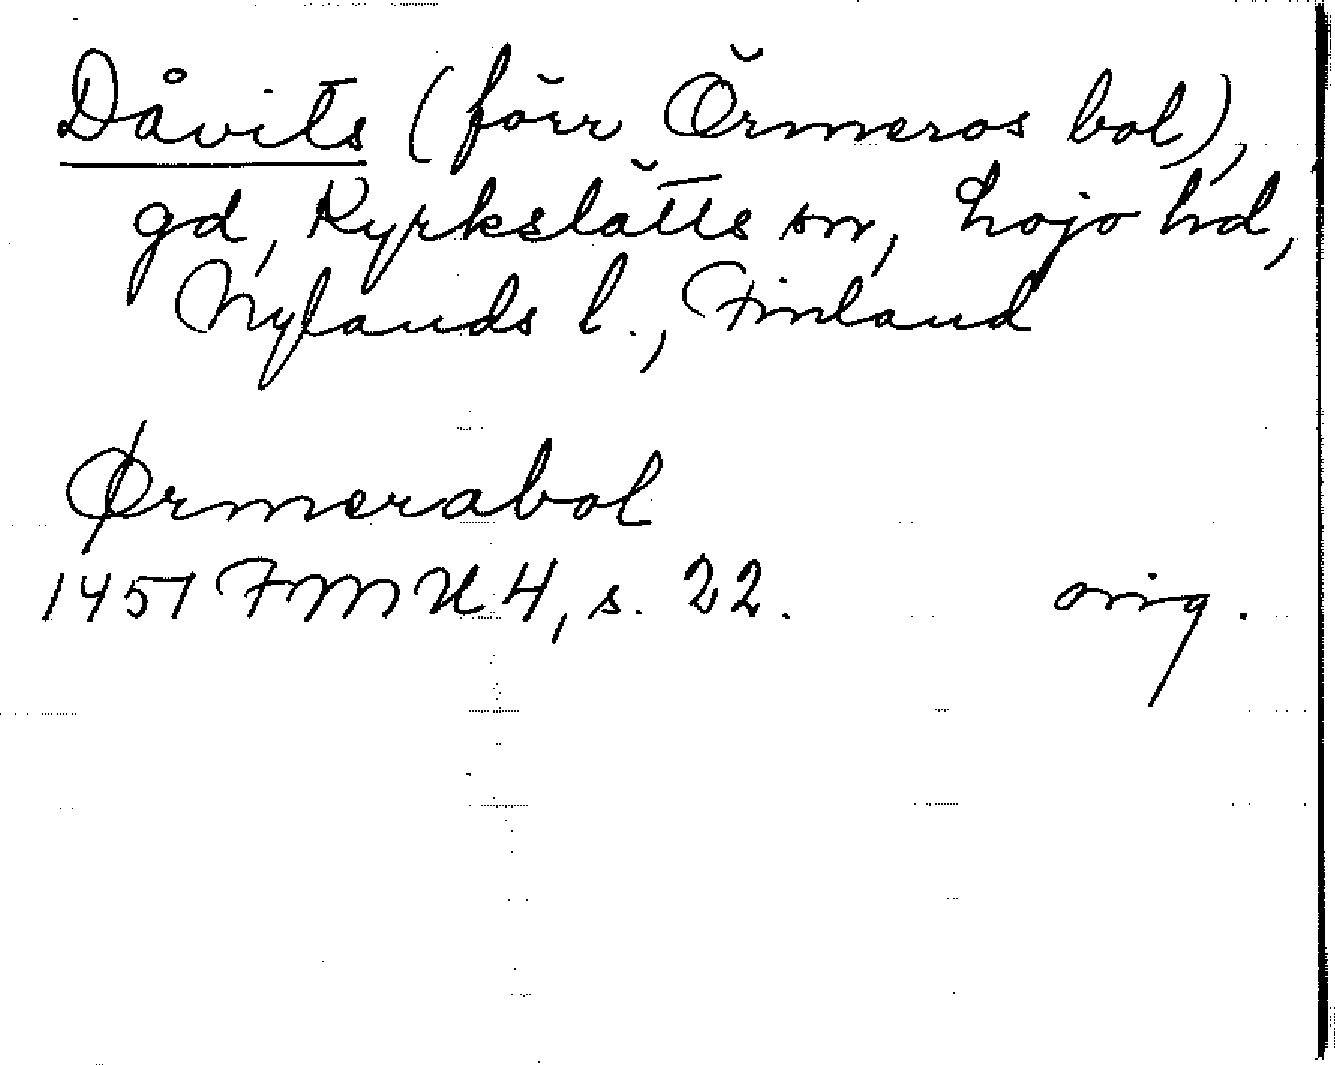 Dåvits (förr Örmeros bol),
gd, Kyrkslätts sn, Lojo hd,
Nylands l., Finland
Ørmerabol
1451 FMU 4, s. 22. orig.